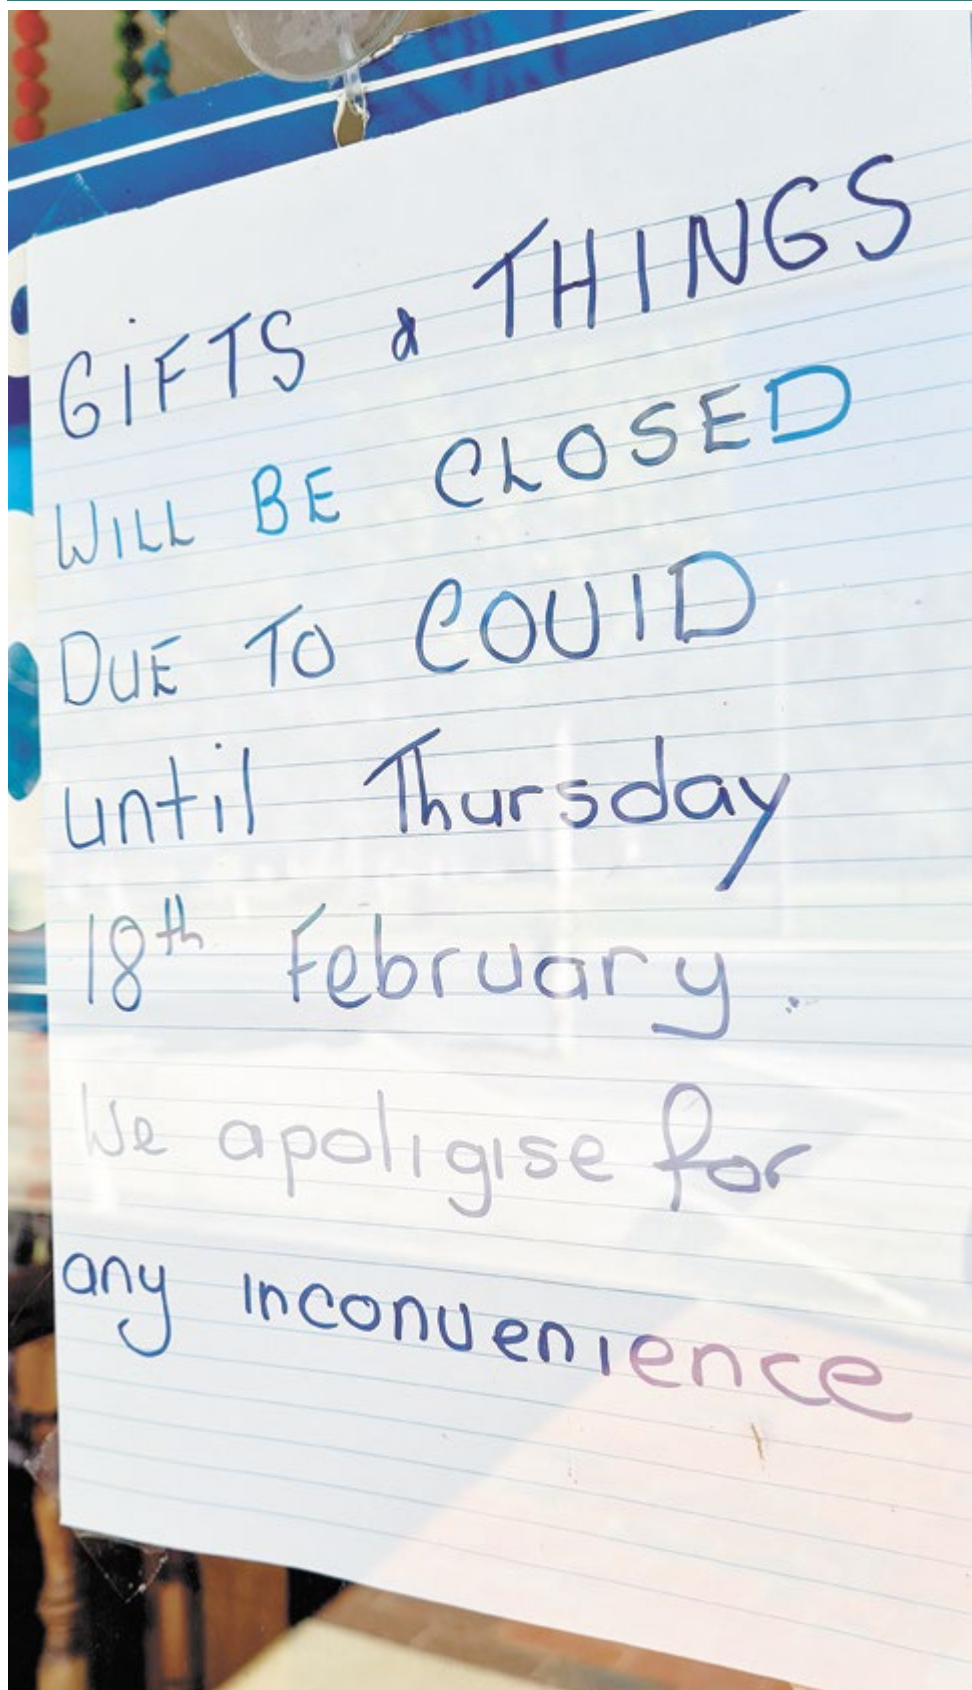 GIFTS & THINGS
WILL BE CLOSED
DUE TO COVID
until Thursday
18th February.
We apoligise for
any inconvenience